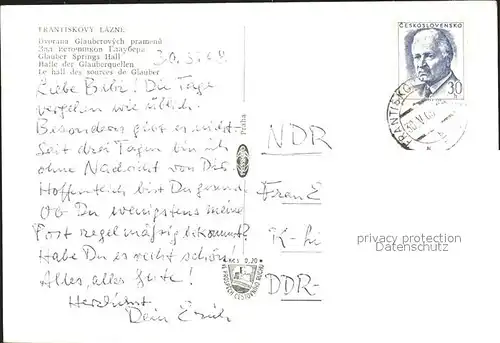 FRANTIŠKOVY LÁZNĚ
Dvorana Glauberových pramenů
Зал источников Глаубера
Glauber Springs Hall
Halle der Glauberquellen
Le hall des sources de Glauber
30.5.68
Liebe Bibi! Die Tage
vergehen wie üblich.
Besonderes gibt es nicht.
Seit drei Tagen bin ich
ohne Nachricht von Dir.
Hoffentlich bist Du gesund.
Ob Du wenigstens meine
Post regelmäßig bekommst?
Habe Du es recht schön!
Alles, alles Gute!
Herzlichst
Dein Erich
Praha
Kčs 0,20
VE PROSPĚCH CESTOVNÍHO RUCHU
ČESKOSLOVENSKO
30
FRANTIŠKO
NDR
Frau E
K-hi
DDR-
privacy protection
Datenschutz